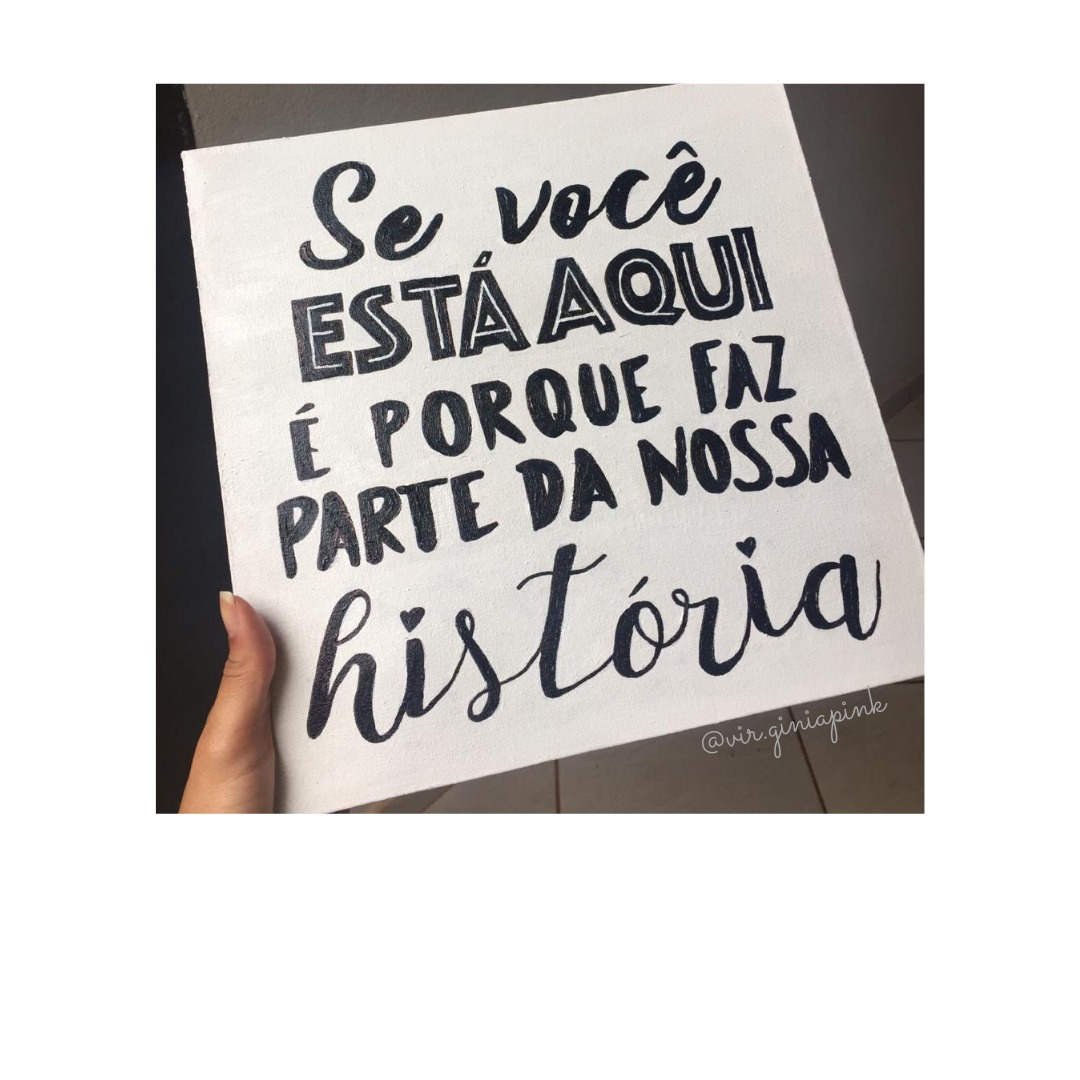 Se você
ESTÁ AQUI
É PORQUE FAZ
PARTE DA NOSSA
história
@vir.giniapink